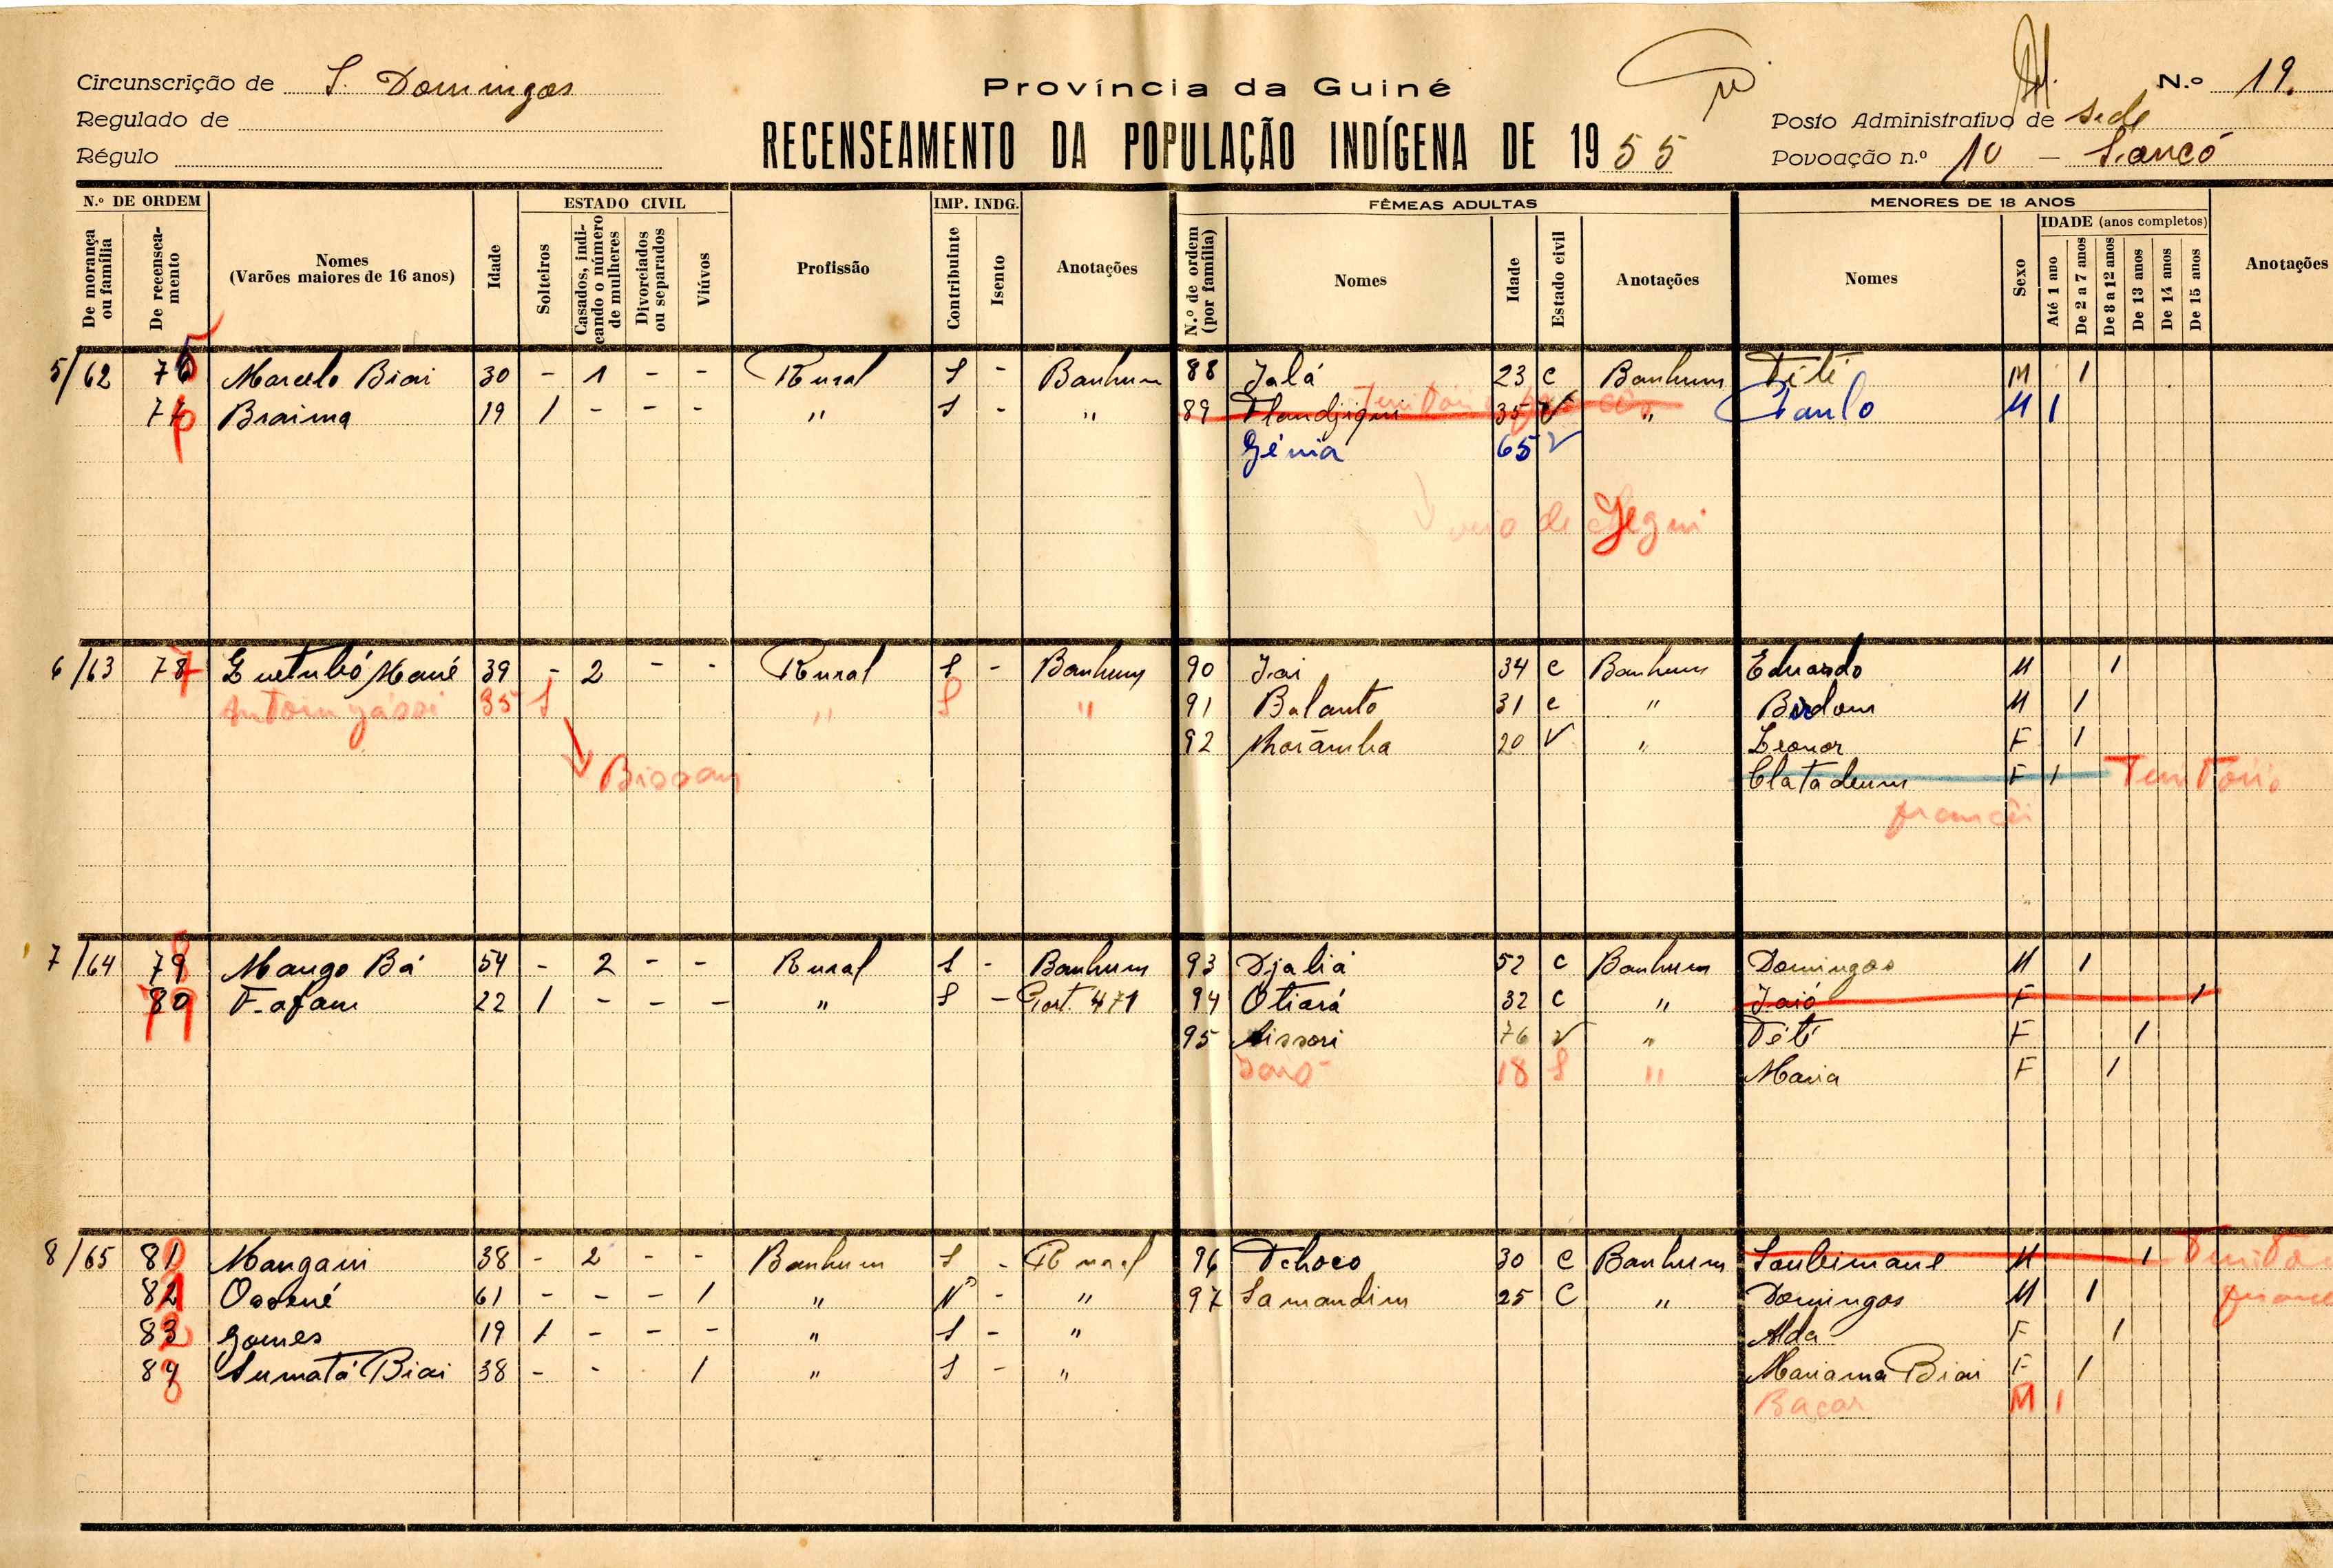 Circunscrição de S. Domingos
Regulado de
Régulo
Província da Guiné
RECENSEAMENTO DA POPULAÇÃO INDÍGENA DE 1955
N.º 19.
Posto Administrativo de sede
Povoação n.º 10 -
N.º DE ORDEM ESTADO CIVIL IMP. INDG. FÊMEAS ADULTAS MENORES DE 18 ANOS
De morança ou família
De recenseamento
Nomes
(Varões maiores de 16 anos)
Idade
Solteiros
Casados, indicando o número de mulheres
Divorciados ou separados
Viúvos
Profissão
Contribuinte
Isento
Anotações
N.º de ordem (por família)
Nomes
Idade
Estado civil
Anotações
Nomes
Sexo
IDADE (anos completos)
Até 1 ano
De 2 a 7 anos
De 8 a 12 anos
De 13 anos
De 14 anos
De 15 anos
Anotações
5/62 76 5 Marcelo Biai 30 - 1 - - Rural S - Banhum 88 Jalá 23 C Banhum Titi M 1
77 6 Braima 19 1 - - - " S - " 89 35 V " Paulo M 1
Génia 65 V
veio de Jegui
6/63 78 7 Mané 39 - 2 - - Rural S - Banhum 90 Jai 34 C Banhum Eduardo M 1
35 S " S " 91 Balanto 31 C " M 1
92 20 V " Leonor F 1
Bissau F 1 Território
francês
7/64 79 8 Mango Bá 54 - 2 - - Rural S - Banhum 93 Djaliá 52 C Banhum Domingos M 1
80 79 Fafam 22 1 - - - " S - 471 94 Otiará 32 C " Jaió F 1
95 Sissori 76 V " Titi F 1
18 S " Maria F 1
8/65 81 0 Mangani 38 - 2 - - Banhum S - Rural 96 Tchoco 30 C Banhum Souleimane M 1
82 1 Ossené 61 - - - 1 " N - " 97 Samandim 25 C " Domingos M 1
83 2 Gomes 19 1 - - - " S - " Alda F 1
84 3 Sumatá Biai 38 - - 1 " S - " Mariama Biai F 1
Baçar M 1